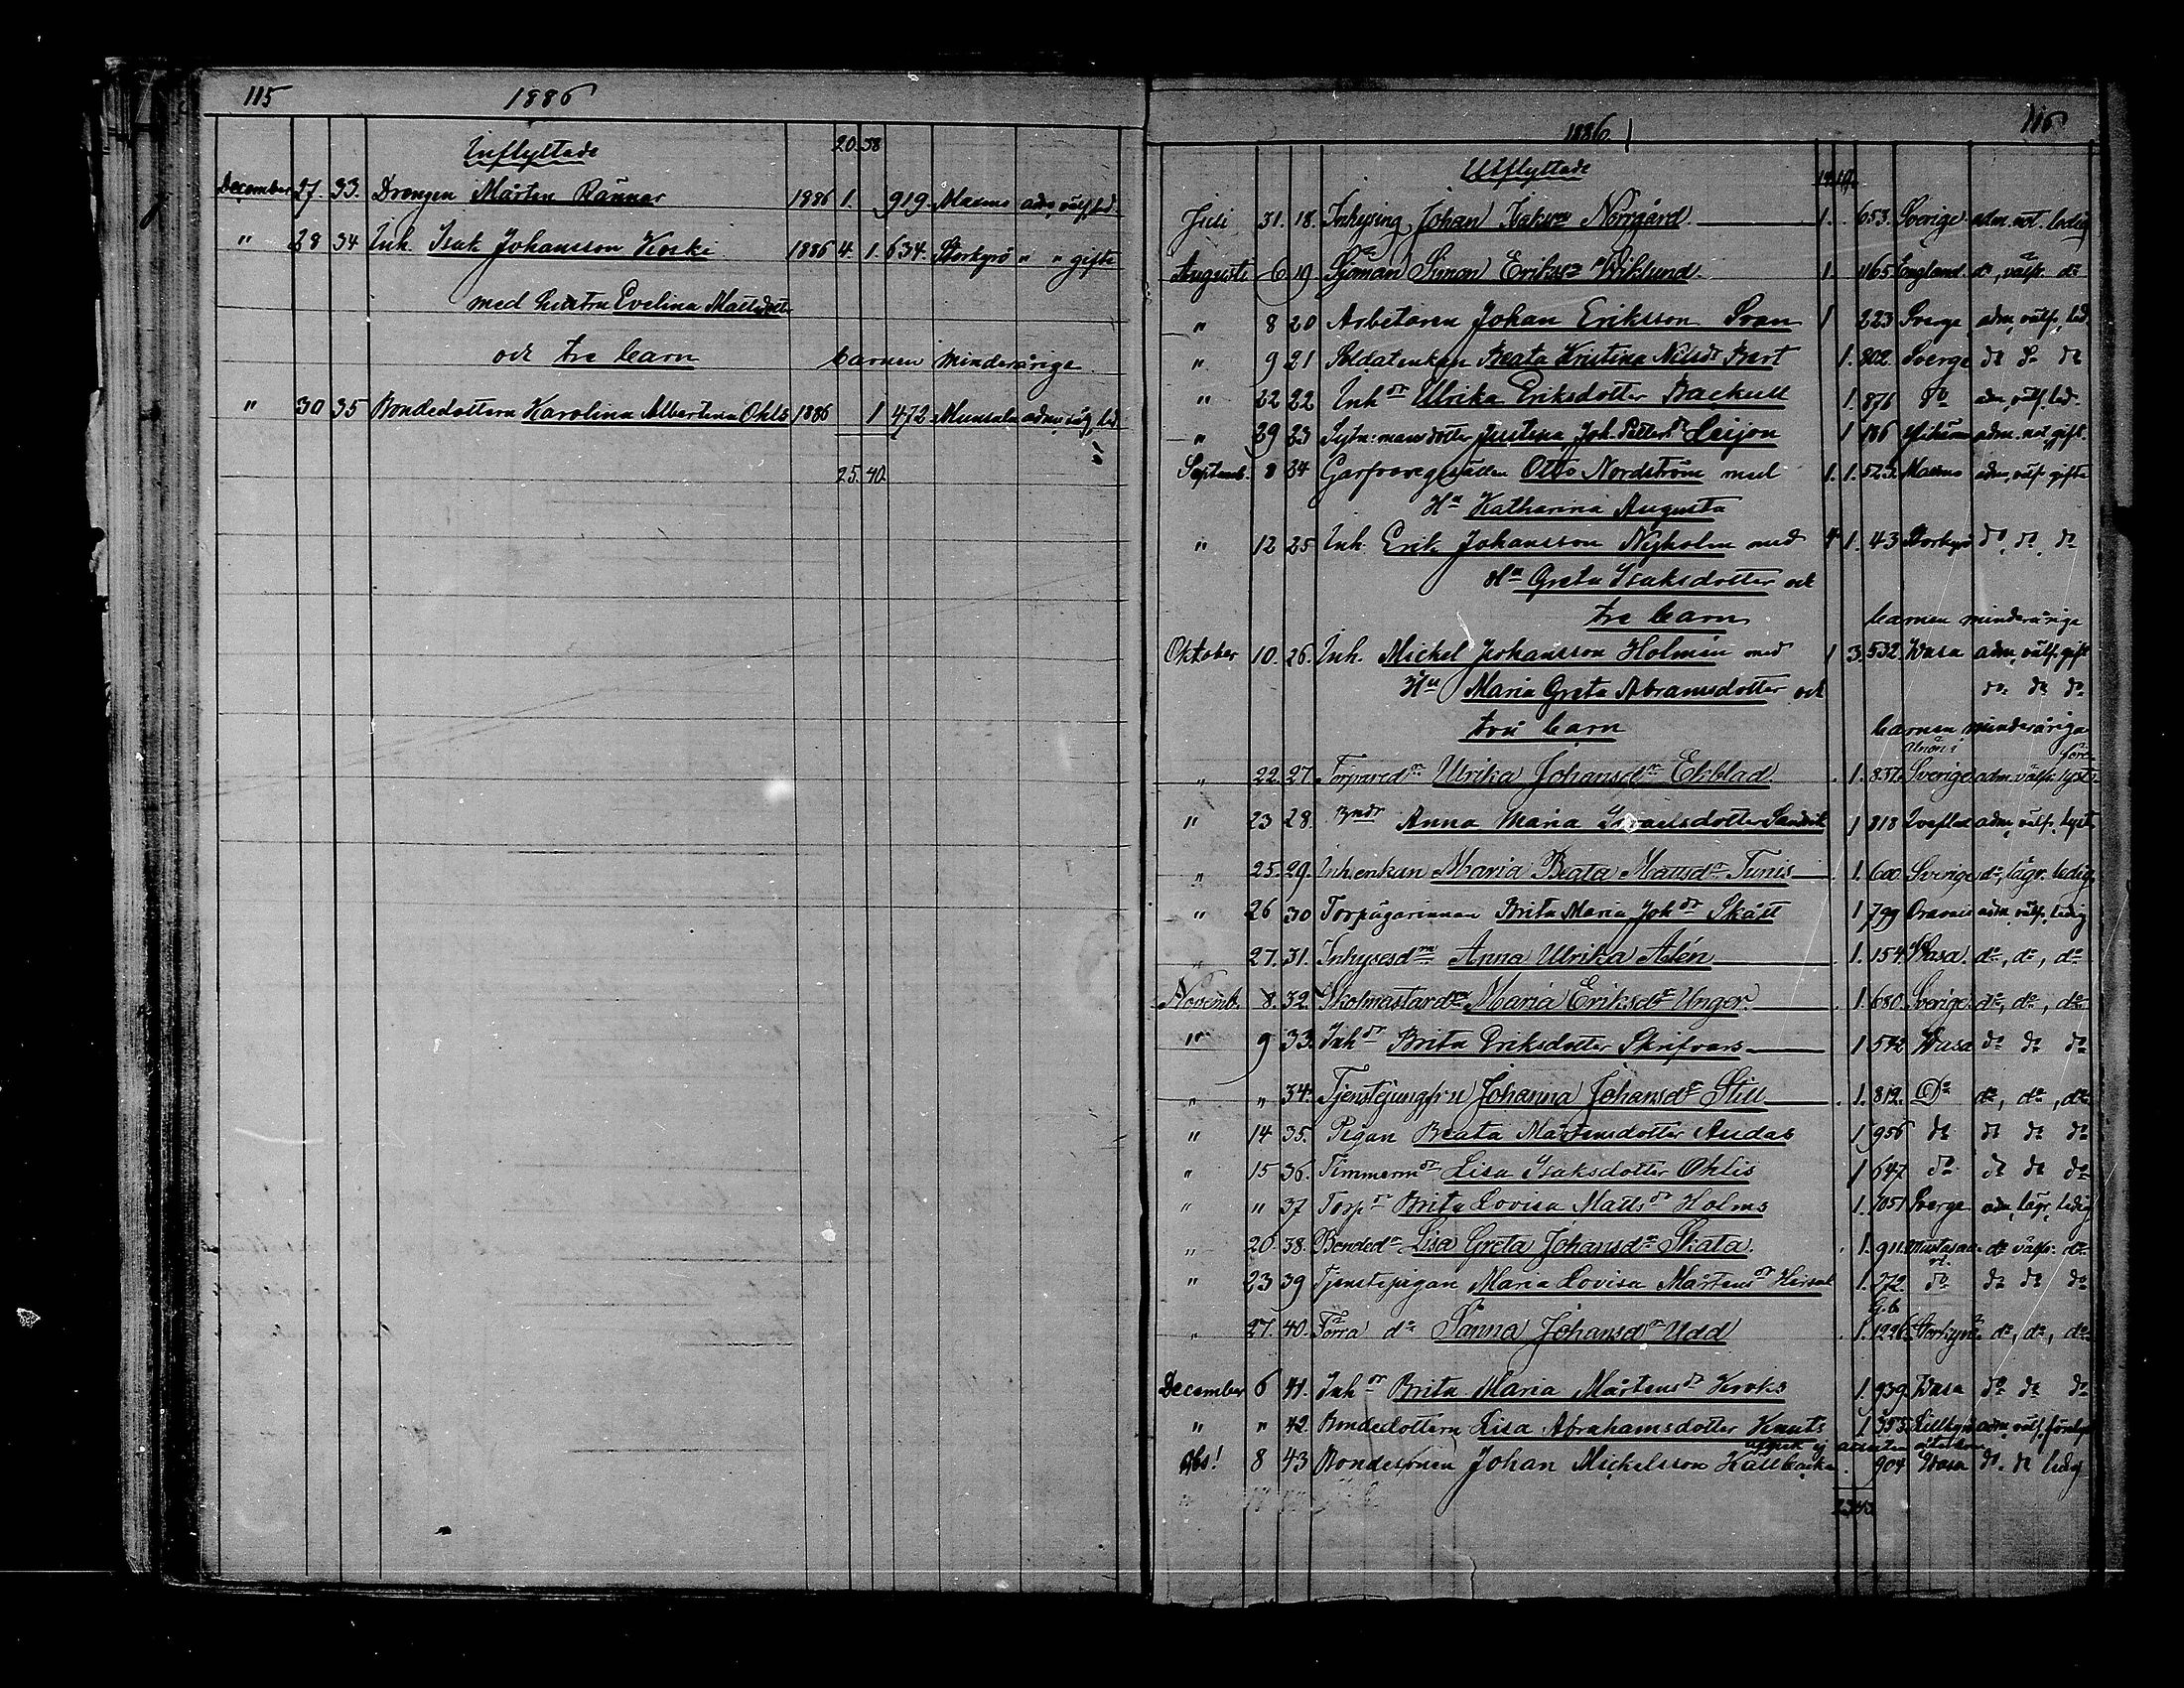 115 1886
Inflyttade 20. 38
December 27. 33. Drengen Mårten Rännar 1886 1. 919. Maxmo adm, välf, led.
" 28 34 Inh. Isak Johansson Koski 1886 4. 1. 634. Storkyro " " gifte
med hustru Evelina Mattsdotter
och tre barn barnen minderårige
" 30 35 Bondedottern Karolina Albertina Ohls 1886 1 472 Munsala adm, led.
25. 40.
1886 116
Utflyttade
Juli 31. 18. Inhysing Johan Isaksson Norrgård 1. 653. Sverige adm. not. ledig
Augusti 6 19 Sjöman Simon Eriksson Wiklund 1. 1165 England do, välfr. do
" 8 20 Arbetaren Johan Eriksson Svan 1 223 Sverge adm, välfr, led.
" 9 21 Soldatenkan Beata Kristina Nilsdr Bert 1. 802. Sverge do do do
" 22 22 Inhdr Ulrika Eriksdotter Backull 1. 876 do adm, välf, led.
" 29 23 Justina Joh. Petter dr Leijon 1 186 adm. not, gift.
Septemb. 8 24 Garfvaregesällen Otto Nordström med 1. 1. 523. Maxmo adm, välf. gifte
Hu Katharina Augusta
" 12 25 Inh. Erik Johansson Nyholm med 4 1. 43 Storkyro do, do, do
Hu Greta Isaksdotter och
tre barn barnen minderårige
Oktober 10. 26. Inh. Mickel Johansson Holmén med 1 3. 532 Wasa adm, välfr, gift
Hu Maria Greta Abramsdotter och do do do
två barn barnen minderåriga
" 22. 27. Ulrika Johansdr Ekblad 1. 837. Sverige adm. välfr. lyst
" 23 28. Byndr Anna Maria Israelsdotter Sandvik 1 818 Qveflax adm, välfr, lyst
" 25. 29. Inh.enkan Maria Beata Mattsdr Tunis 1. 600. Sverige do, lägr. ledig
" 26 30 Torpägarinnan Brita Maria Johdr Skått 1 799 Oravais adm, välfr, ledig
" 27. 31. Inhysesdrn Anna Ulrika Alén 1. 154. Wasa. do, do, do
Novemb. 8. 32. Skolmästardrn Maria Eriksdr Unger. 1. 680. Sverige. do, do, do
" 9 33. Inhdr Brita Eriksdotter Skrifvars 1 572 Wasa do do do
" " 34. Tjenstejungfru Johanna Johansdr Still 1. 812. Do do, do, do
" 14 35. Pigan Beata Mårtensdotter Audas 1 956 do do do do
" 15 36. Timmermdr Lisa Isaksdotter Ohlis 1 647 do do do do
" " 37 Torpdr Brita Lovisa Mattsdr Holms 1. 1051 Sverge adm, lägr, ledig
" 20 38. Bondedr Lisa Greta Johansdr Skata. 1. 911. Mustasaari do välfr. do
" 23 39 Tjenstepigan Maria Lovisa Mårtensdr 1. 272. do do do do
" 27. 40. Förra do Sanna Johansdr Udd 1. 1226. Storkyro do, do, do
December 6 41. Inhdr Brita Maria Mårtensdr Kroks 1. 939. Wasa do do do
" " 42. Bondedottern Lisa Abrahamsdotter Knuts 1 353. Lillkyro adm, välf,
Obs! 8 43 Bondesonen Johan Mickelsson Källbacka 904 Wasa do do ledig